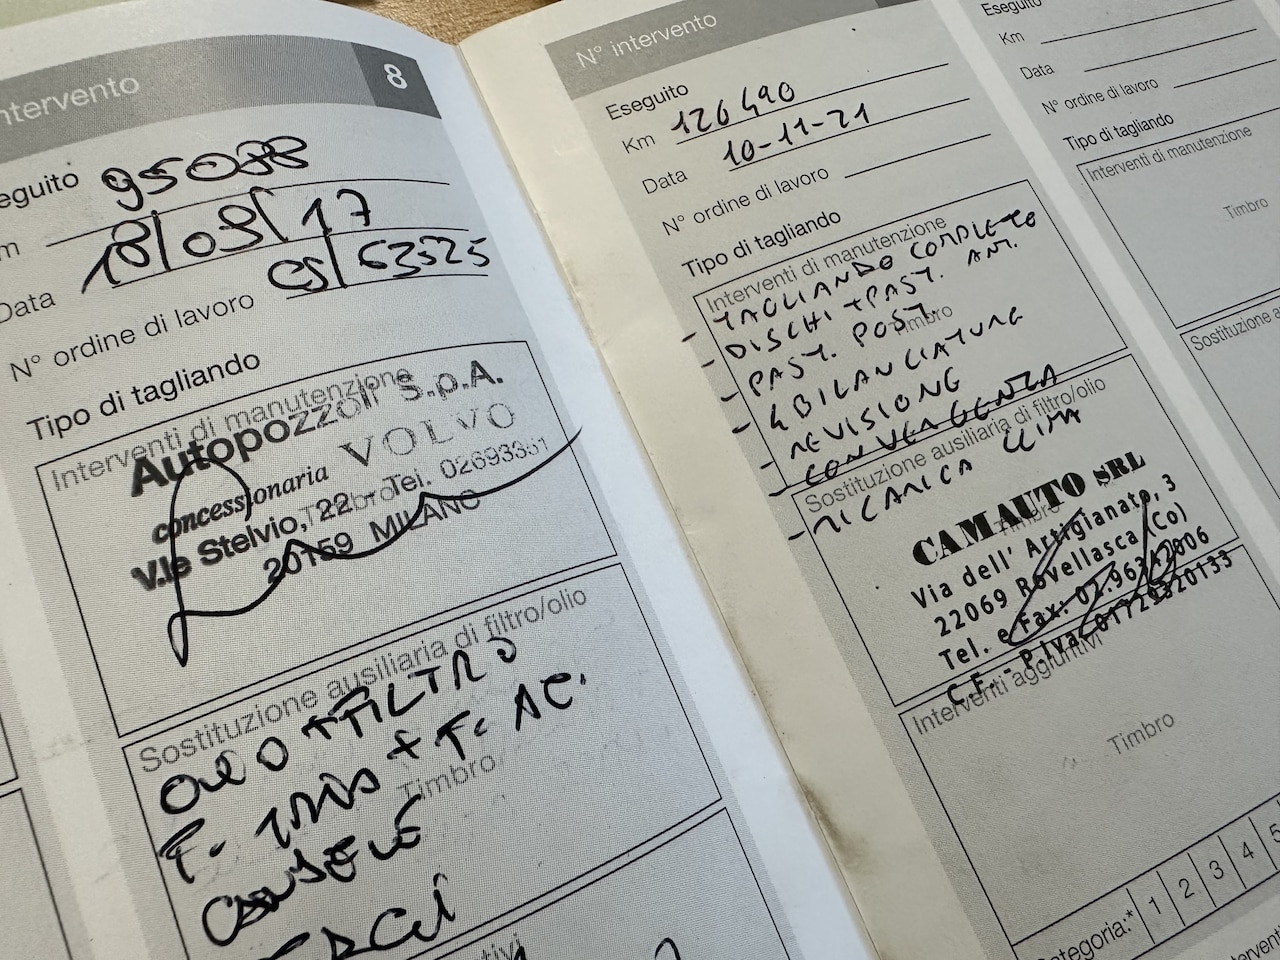 intervento 8
eguito 95088
m 18/09/17
Data
N° ordine di lavoro CS/63525
Tipo di tagliando
Interventi di manutenzione
Autopozzoli S.p.A.
concessionaria VOLVO
V.le Stelvio, 22 - Tel. 02693361
Timbro
20159 MILANO
Sostituzione ausiliaria di filtro/olio
OLIO + FILTRO
Timbro
N° intervento
Eseguito
Km 126490
Data 10-11-21
N° ordine di lavoro
Tipo di tagliando
Interventi di manutenzione
- TAGLIANDO COMPLETO
- DISCHI + PAST. ANT.
Timbro
- PAST. POST.
- 4 BILANCIATURE
- REVISIONE
- CONVERGENZA
Sostituzione ausiliaria di filtro/olio
- RICARICA CLIMA
Timbro
CAMAUTO SRL
Via dell' Artigianato, 3
22069 Rovellasca (Co)
Tel. e Fax: 02.96342006
C.F. - P.Iva 01729320133
Interventi aggiuntivi
Timbro
Categoria:* 1 2 3 4 5
Eseguito
Km
Data
N° ordine di lavoro
Tipo di tagliando
Interventi di manutenzione
Timbro
Sostituzione